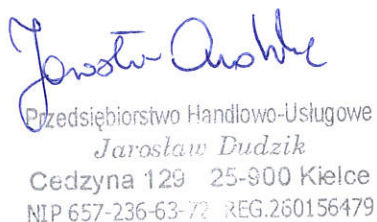 Przedsiębiorstwo Handlowo-Usługowe
Jarosław Dudzik
Cedzyna 129 25-900 Kielce
NIP 657-236-63-72 REG.260156479